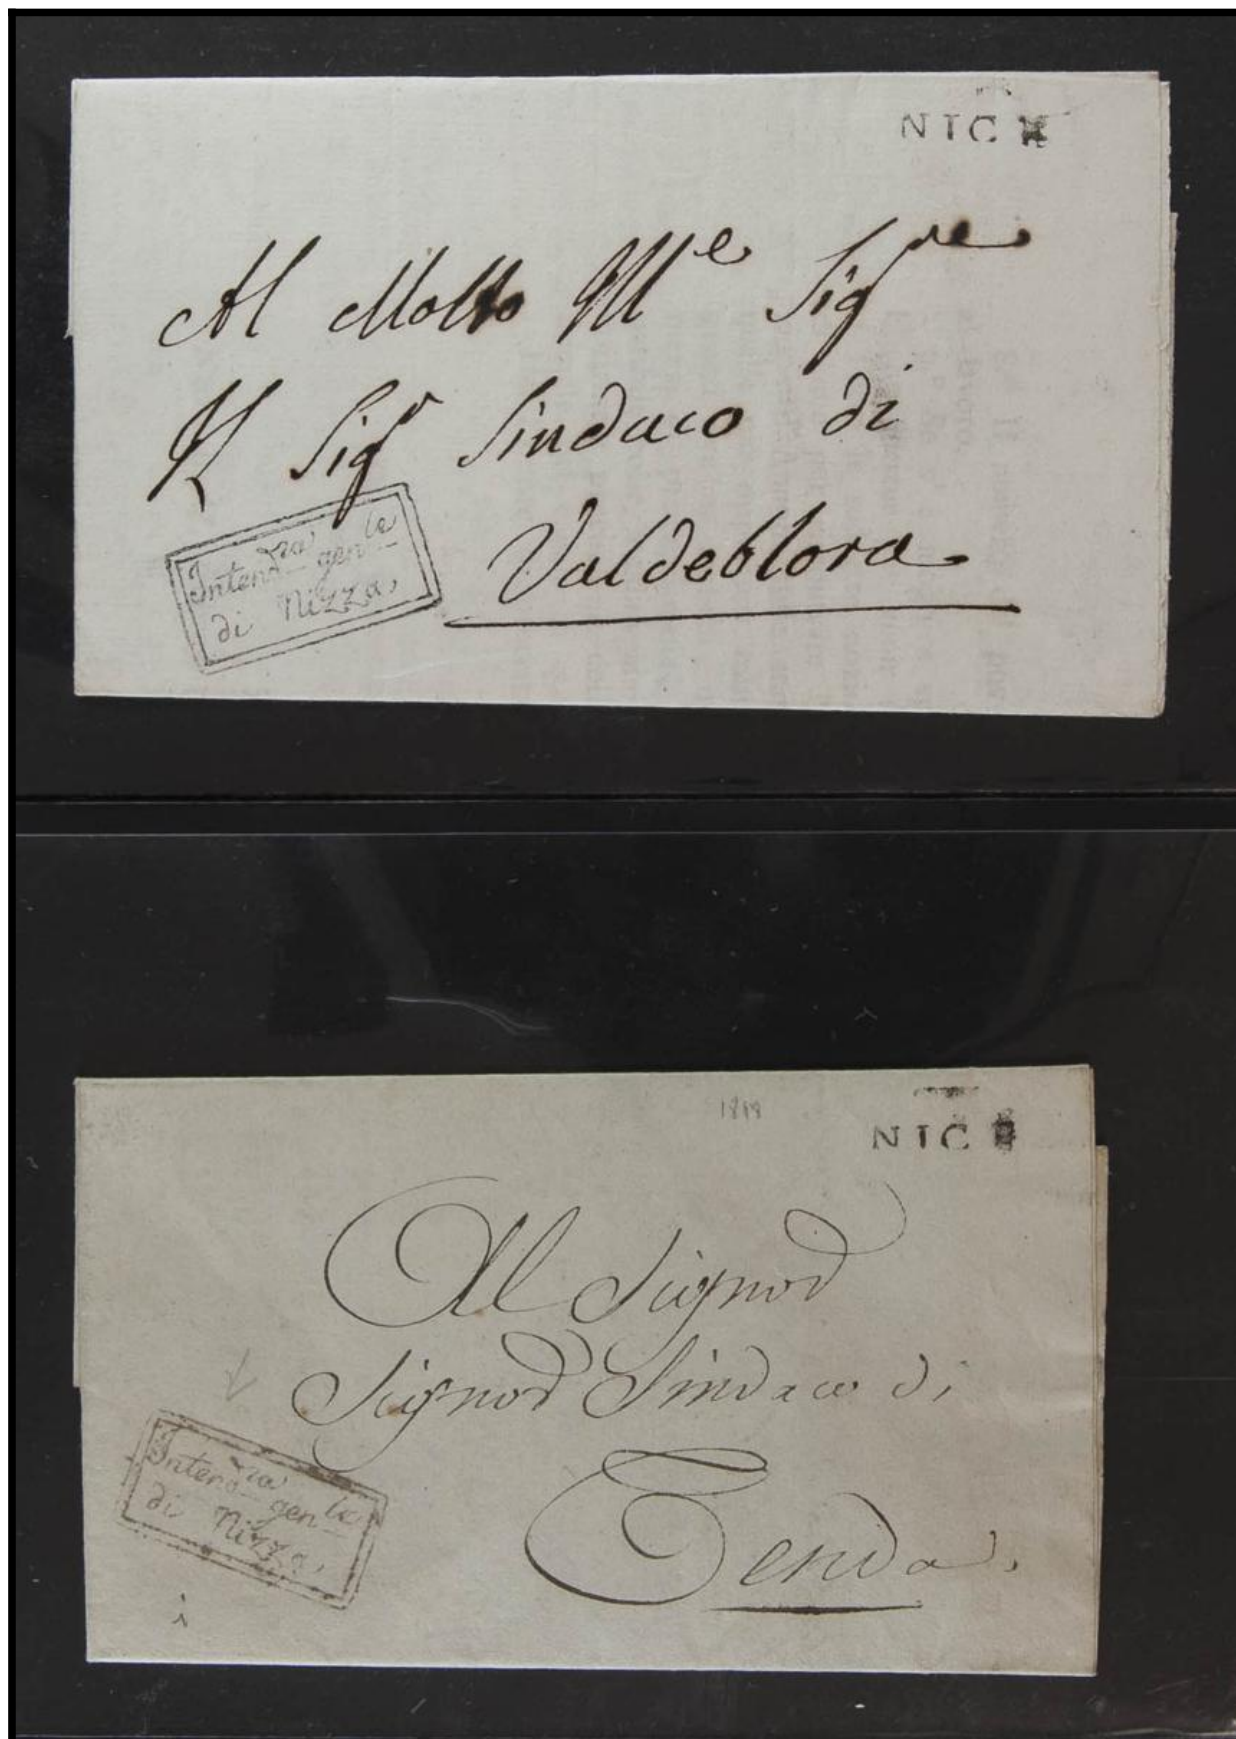 NICE
Al Molto Ill.e Sig.re
Il Sig.r Sindaco di
Valdeblora
Intend.za gen.le
di Nizza.
1819
NICE
Al Signor
Signor Sindaco di
Tenda.
Intend.za gen.le
di Nizza.